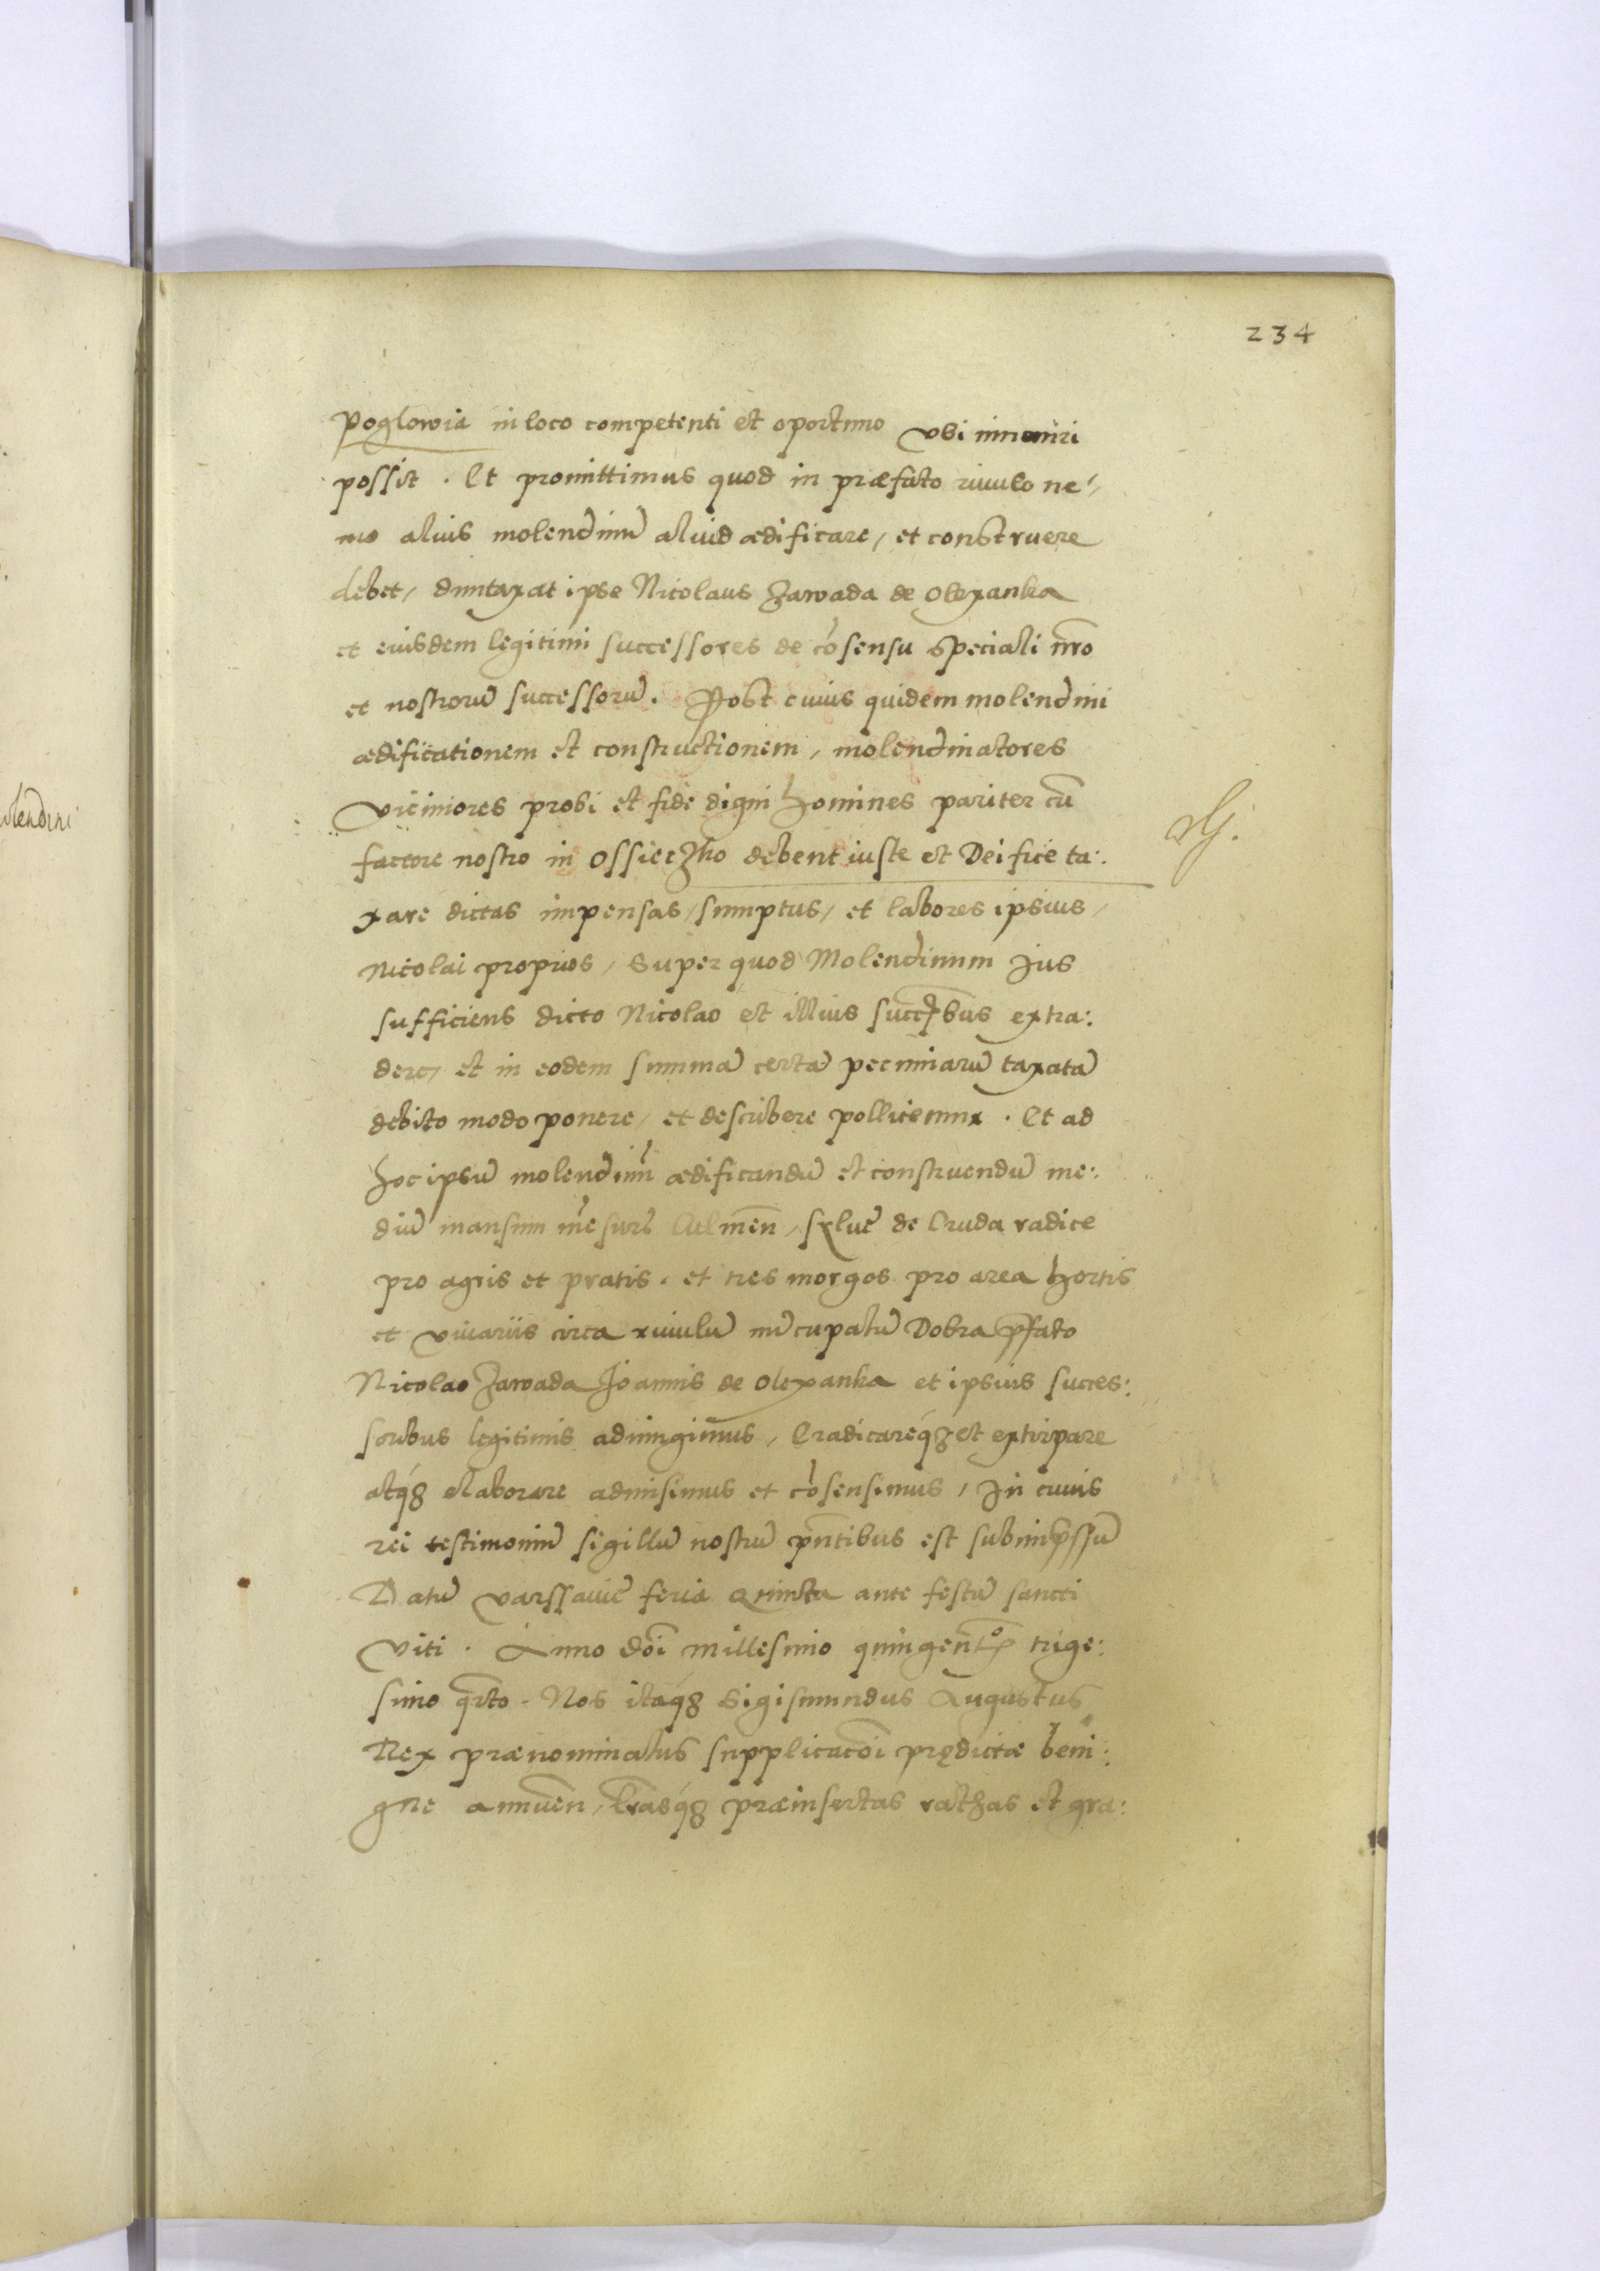 234
Poglowia in loco competenti et oportuno vbi inueniri
possit . Et promittimus quod in præfato riuulo ne-
mo alius molendinũ aliud ædificare, et construere
debet, duntaxat ipse Nicolaus Zawada de Olexanka
et eiusdem legitimi successores de cõsensu speciali nr̃o
et nostrorũ successorũ. Post cuius quidem molendini
ædificationem et constructionem, molendinatores
viciniores probi et fide digni homines pariter cũ
factore nostro in Ossieczko debent iuste et Deifice ta:
xare dictas impensas, sumptus, et labores ipsius,
Nicolai proprios, super quod Molendinum Jus
sufficiens dicto Nicolao et illius succr̃ibus extra:
dere, et in eodem summã certã pecuniarũ taxatã
debito modo ponere, et describere pollicemur . Et ad
hoc ipsũ molendinũ ædificandũ et construendũ me:
diũ mansum mẽsurẽ Culmeñ, syluę de Cruda radice
pro agris et pratis. et tres morgos pro area hortis
et viuariis circa riuulũ nũcupatũ Dobra p̃fato
Nicolao Zawada Joannis de Olexanka et ipsius succes:
soribus legitimis adiungimus, Eradicareq́ʒ et extirpare
atq́ʒ elaborare admisimus et cõsensimus, In cuius
rei testimoniũ sigillũ nostrũ pñtibus est subimp̃ssũ
Datũ varssauię feria Quinta ante festũ sancti
Viti . Anno doĩ millesimo quingent̃o trige:
simo qr̃to . Nos itaq́ʒ Sigismundus Augustus
Rex prænominatus supplicacõi prędictæ beni:
gne annueñ, Lr̃asq́ʒ præinsertas rathas et gra: